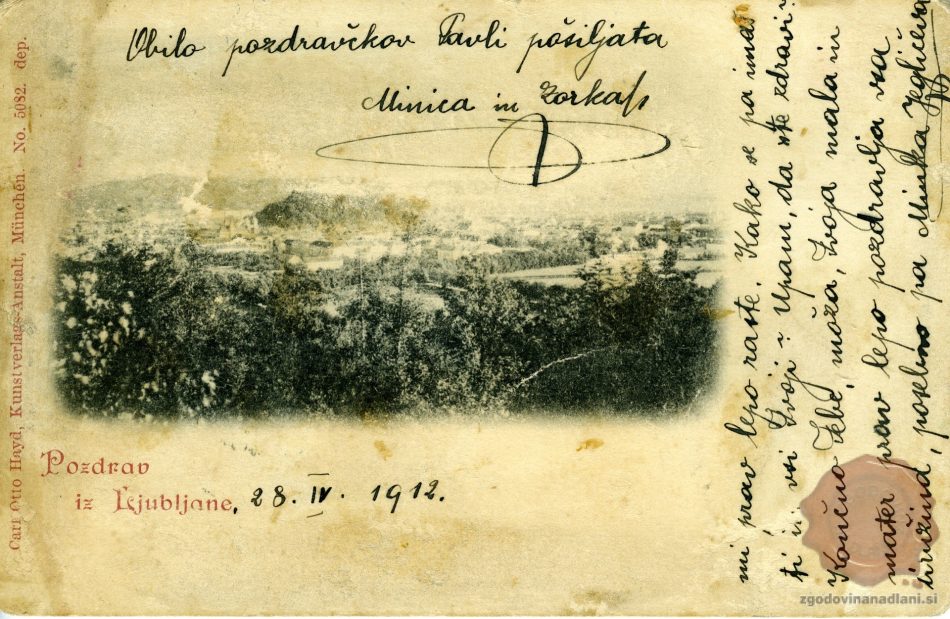 Obilo pozdravčkov Pavli pošiljata
Minica in Zorka
mi prav lepo raste. Kako se pa imaš
ti in vsi Tvoji? Upam, da ste zdravi?
Končno Tebe, moža, Tvoja mala in
mater prav lepo pozdravlja vsa
družina, posebno pa Minka Jegličeva
Carl Otto Hayd, Kunstverlags-Anstalt, München. No. 5082. dep.
Pozdrav
iz Ljubljane, 28. IV. 1912.
zgodovinanadlani.si